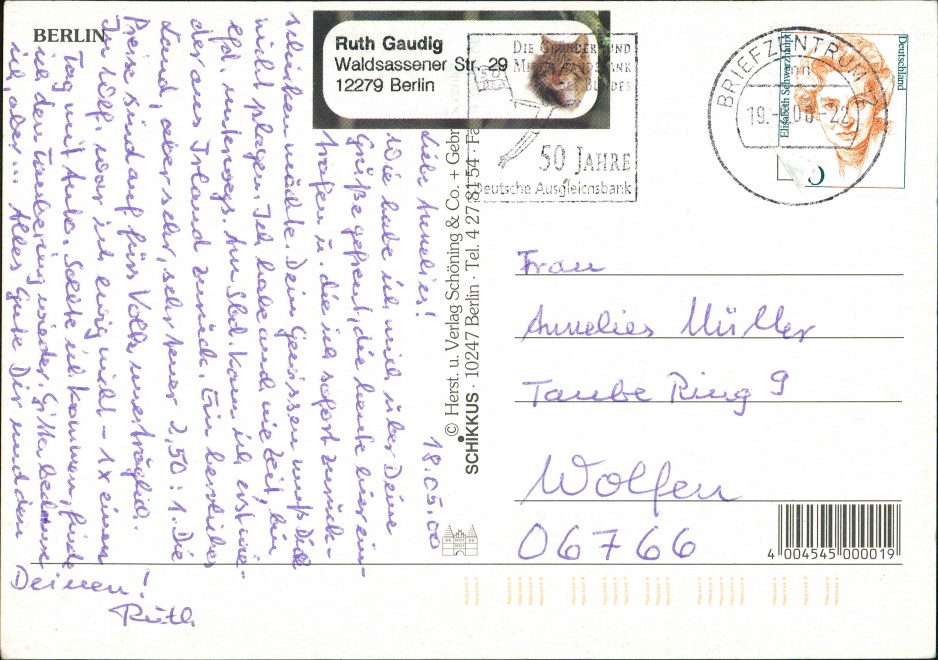 BERLIN
Ruth Gaudig
Waldsassener Str. 29
12279 Berlin
DIE GRÜNDER UND
MITTELSTANDSBANK
DES BUNDES
50 JAHRE
Deutsche Ausgleichsbank
BRIEFZENTRUM
19. 00-22
Deutschland
Elisabeth Schwarzhaupt
18.05.00
Liebe Annelies!
Wie habe ich mich über Deine
Grüße gefreut, die heute hier ein-
trafen u. die ich sofort zurück-
schicken möchte. Dein Gewissen muß Dich
nicht plagen. Ich habe auch nie Zeit, bin
lfd. unterwegs. Am Sbd. kam ich erst wie-
der aus Irland zurück. Ein herrliches
Land, aber sehr, sehr teuer 2,50 : 1. Die
Preise sind fürs Volk unerträglich.
In Wolf. war ich ewig nicht - 1x einen
Tag mit Anke. Sollte ich kommen, finde
ich den Taubering wieder. Gitta bedauere
ich, aber ... Alles Gute Dir und den
Deinen!
Ruth
© Herst. u. Verlag Schöning & Co. + Gebr.
SCHIKKUS · 10247 Berlin · Tel. 4 27 81 54 · Fa
Frau
Annelies Müller
Taube Ring 9
Wolfen
06766
4 004545 000019